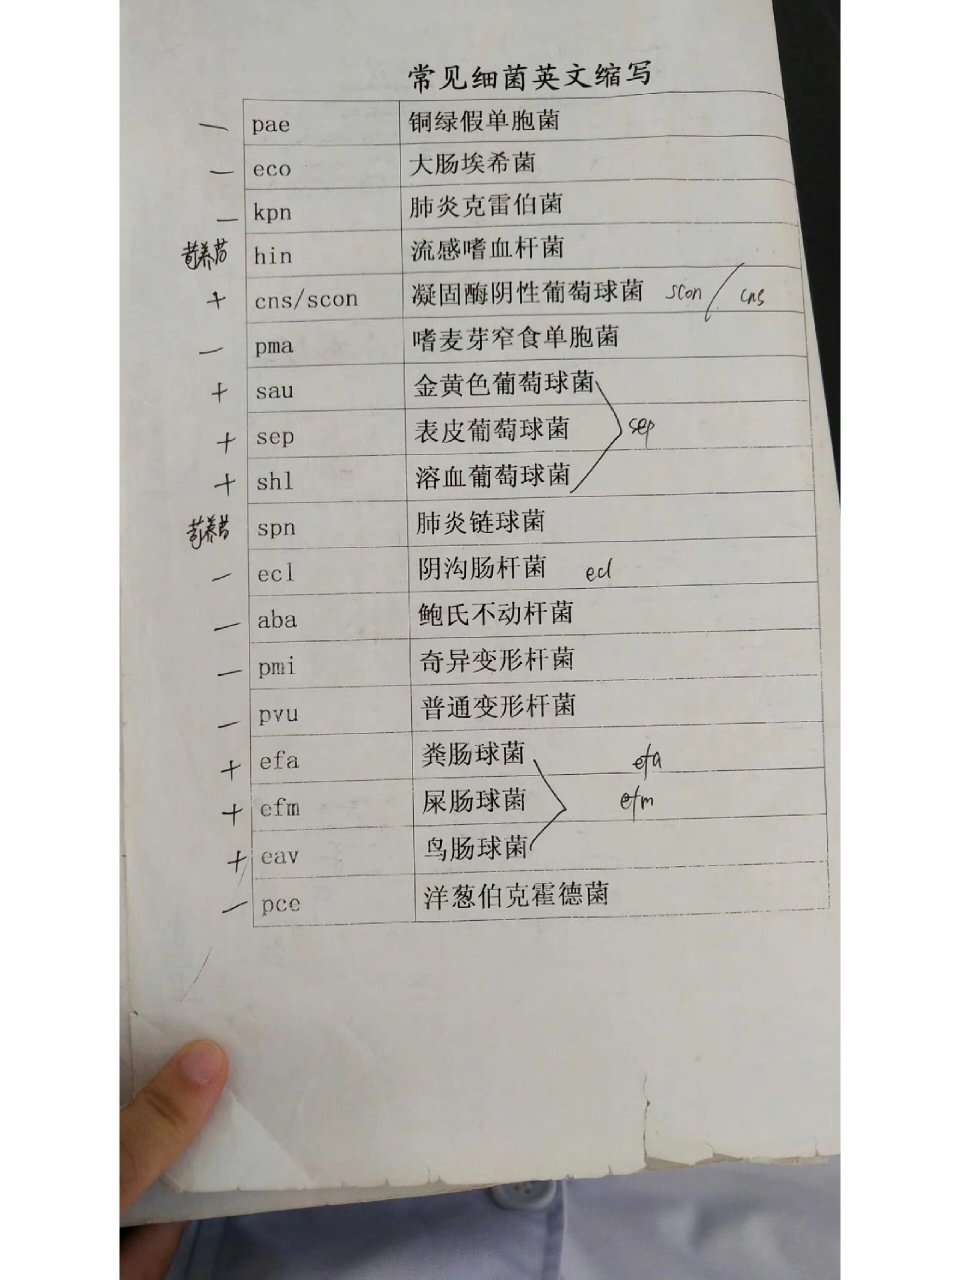 常见细菌英文缩写
— pae 铜绿假单胞菌
— eco 大肠埃希菌
— kpn 肺炎克雷伯菌
苛养菌 hin 流感嗜血杆菌
+ cns/scon 凝固酶阴性葡萄球菌 scon / cns
— pma 嗜麦芽窄食单胞菌
+ sau 金黄色葡萄球菌
+ sep 表皮葡萄球菌 sep
+ shl 溶血葡萄球菌
苛养菌 spn 肺炎链球菌
— ecl 阴沟肠杆菌 ecl
— aba 鲍氏不动杆菌
— pmi 奇异变形杆菌
— pvu 普通变形杆菌
+ efa 粪肠球菌 efa
+ efm 屎肠球菌 efm
+ eav 鸟肠球菌
— pce 洋葱伯克霍德菌